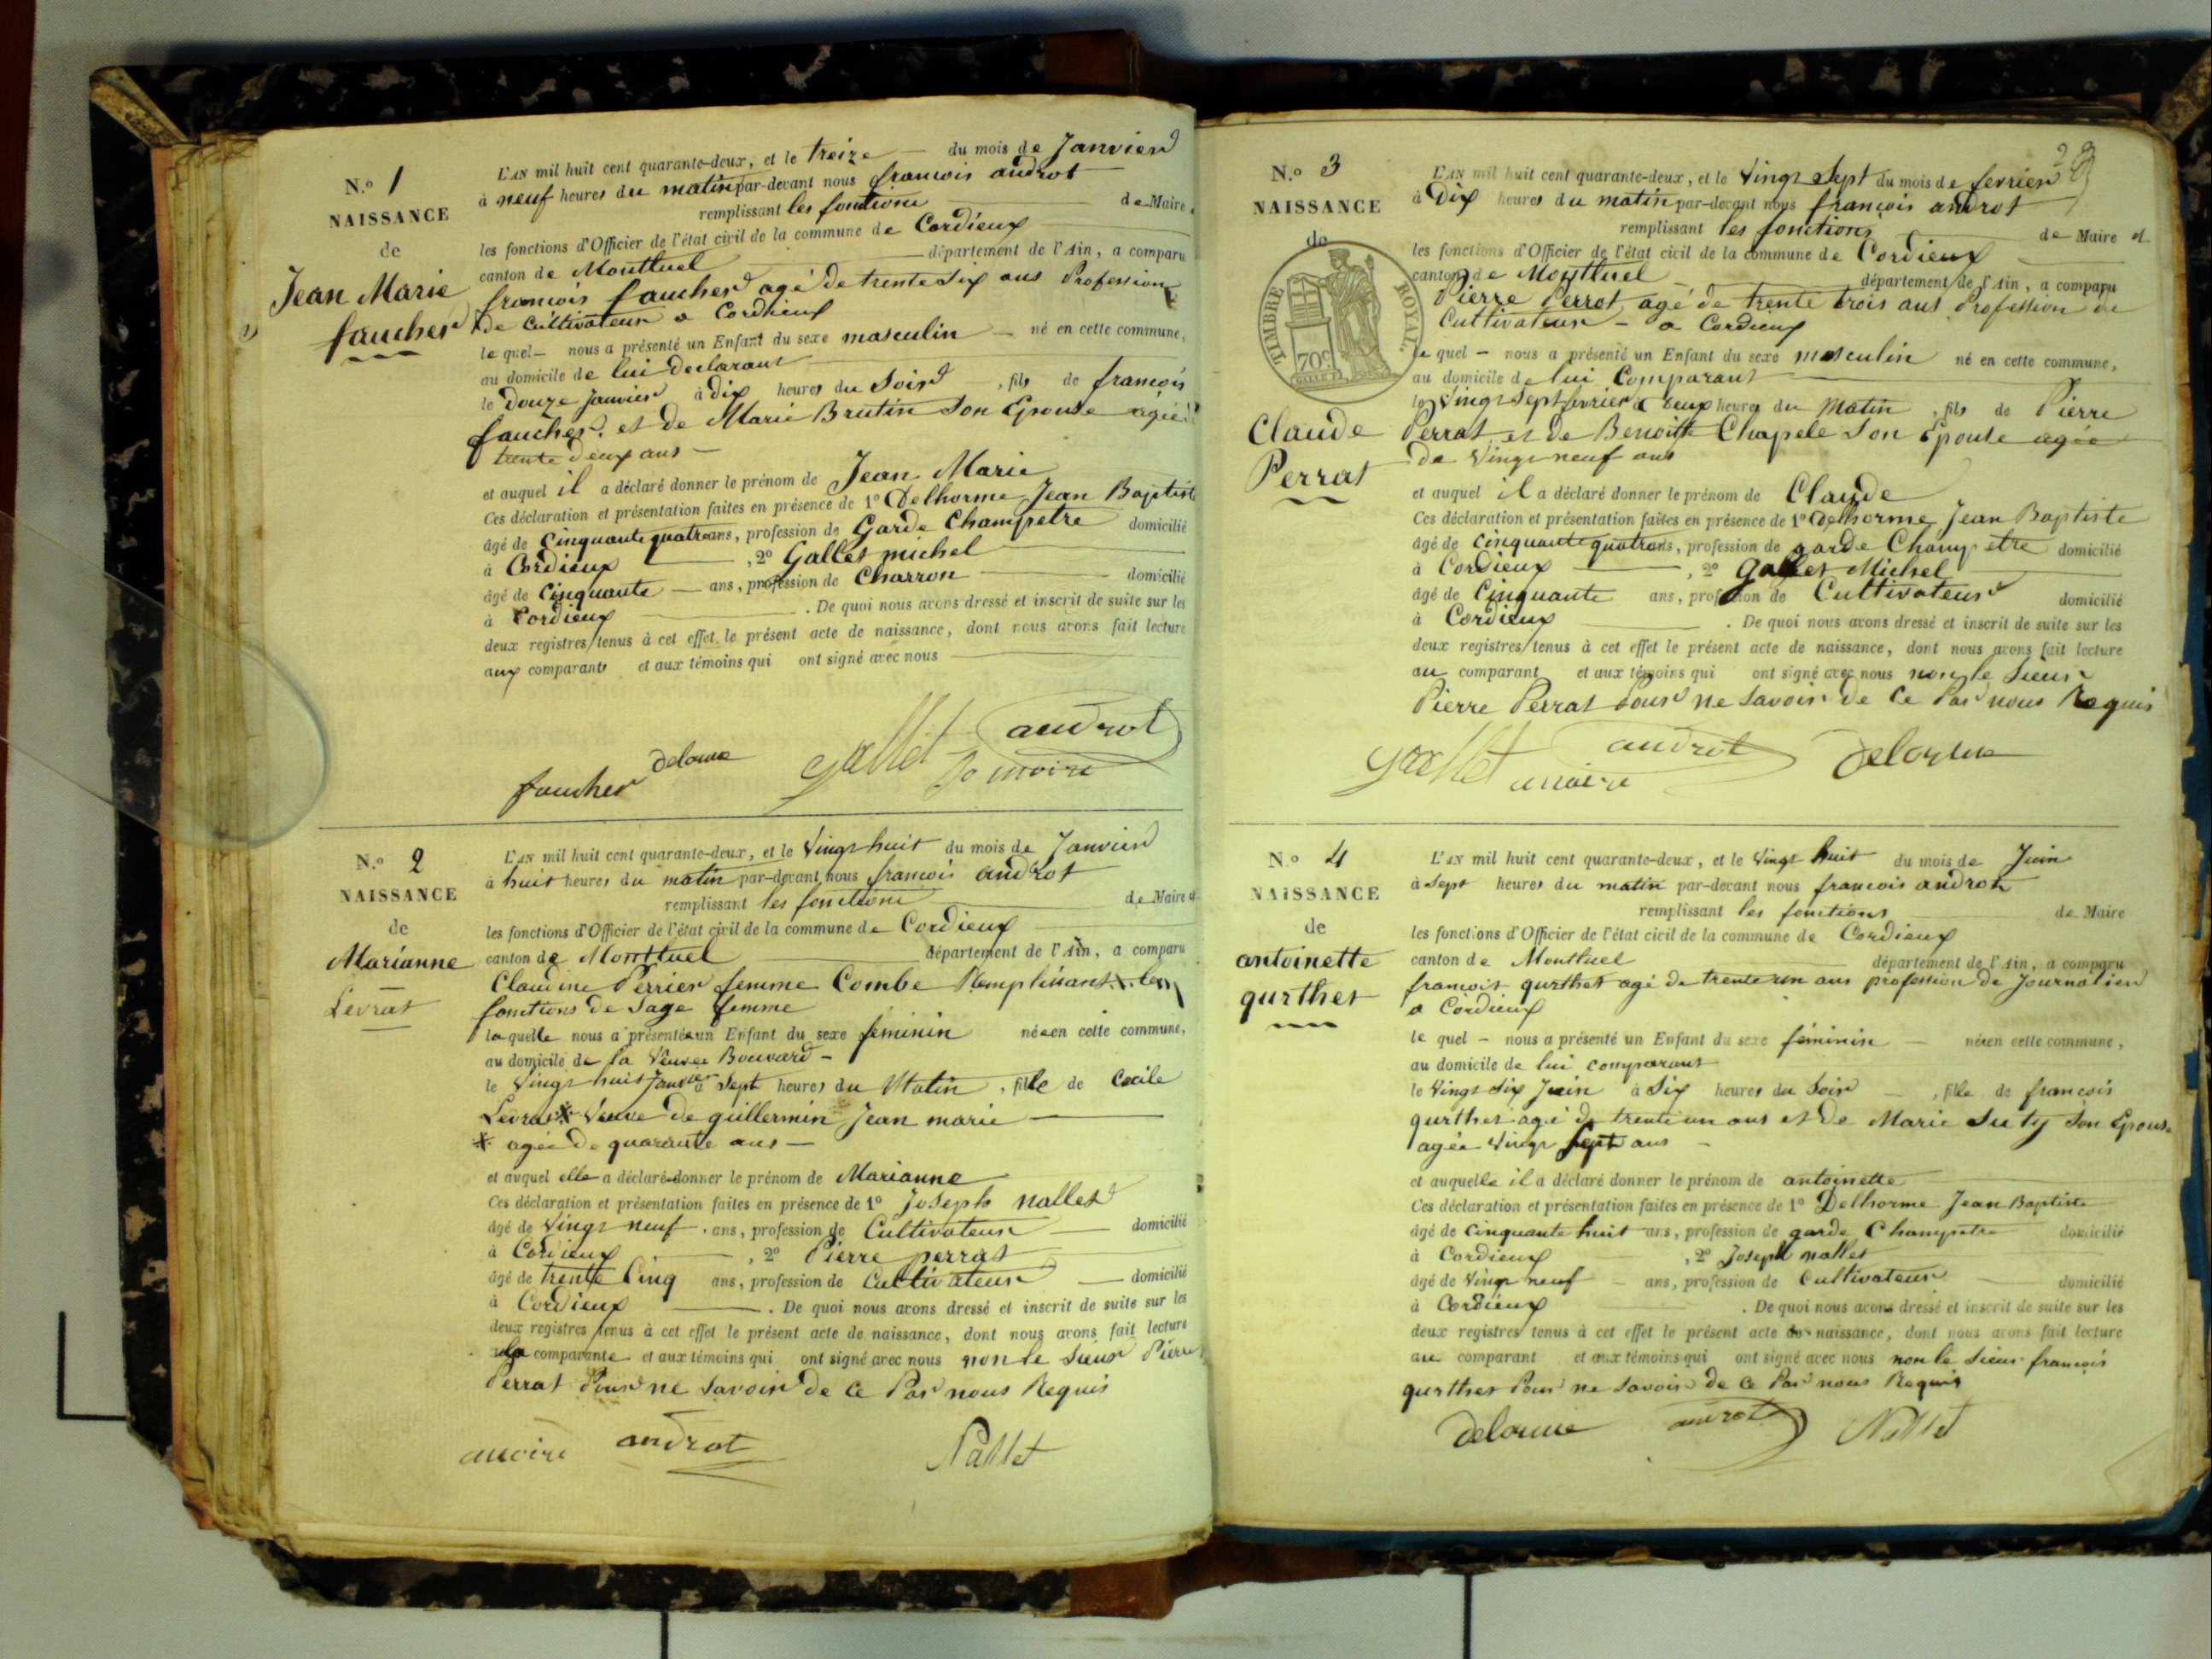 N.o 1
NAISSANCE
de
Jean Marie
faucher
L'AN mil huit cent quarante-deux, et le treize du mois de Janvier
à neuf heures du matin par-devant nous francois androt
remplissant les fonctions de Maire
les fonctions d'Officier de l'état civil de la commune de Cordieux
canton de Montluel département de l'Ain, a comparu
francois faucher agé de trente Six ans Profession
de Cultivateur a Cordieux
le quel nous a présenté un Enfant du sexe masculin né en cette commune,
au domicile de lui declarant
le Douze Janvier à dix heures du Soir, fils de francois
faucher et de Marie Brutin Son Epouse agée
trente deux ans
et auquel il a déclaré donner le prénom de Jean Marie
Ces déclaration et présentation faites en présence de 1o Delhorme Jean Baptiste
âgé de Cinquante quatre ans, profession de Garde Champetre domicilié
à Cordieux, 2o Gallet michel
âgé de Cinquante ans, profession de Charron domicilié
à Cordieux. De quoi nous avons dressé et inscrit de suite sur les
deux registres tenus à cet effet le présent acte de naissance, dont nous avons fait lecture
aux comparants et aux témoins qui ont signé avec nous
faucher delorme Gallet androt
maire
N.o 2
NAISSANCE
de
Marianne
Levrat
L'AN mil huit cent quarante-deux, et le Vingt huit du mois de Janvier
à huit heures du matin par-devant nous francois androt
remplissant les fonctions de Maire et
les fonctions d'Officier de l'état civil de la commune de Cordieux
canton de Montluel département de l'Ain, a comparu
Claudine Perrier femme Combe Remplissant les
fonctions de Sage femme
laquelle nous a présenté un Enfant du sexe féminin née en cette commune,
au domicile de la Veuve Bouvard
le Vingt huit Janvier à Sept heures du Matin, fille de Cecile
Levrat * Veuve de guillermin Jean marie
* agée de quarante ans
et auquel elle a déclaré donner le prénom de Marianne
Ces déclaration et présentation faites en présence de 1o Joseph nallet
âgé de Vingt neuf ans, profession de Cultivateur domicilié
à Cordieux, 2o Pierre perrat
âgé de trente Cinq ans, profession de Cultivateur domicilié
à Cordieux. De quoi nous avons dressé et inscrit de suite sur les
deux registres tenus à cet effet le présent acte de naissance, dont nous avons fait lecture
comparante et aux témoins qui ont signé avec nous non le Sieur Pierre
Perrat Pour ne Savoir de Ce Par nous Requis
maire androt Nallet
N.o 3
NAISSANCE
de
TIMBRE ROYAL
70c
Claude
Perrat
L'AN mil huit cent quarante-deux, et le Vingt Sept du mois de fevrier
à Dix heures du matin par-devant nous françois androt
remplissant les fonctions de Maire et
les fonctions d'Officier de l'état civil de la commune de Cordieux
canton de Montluel département de l'Ain, a comparu
Pierre Perrat agé de trente trois ans Profession de
Cultivateur a Cordieux
le quel nous a présenté un Enfant du sexe masculin né en cette commune,
au domicile de lui Comparant
le Vingt Sept fevrier à deux heures du Matin, fils de Pierre
Perrat et de Benoitte Chapele Son Epouse agée
de Vingt neuf ans
et auquel il a déclaré donner le prénom de Claude
Ces déclaration et présentation faites en présence de 1o Delhorme Jean Baptiste
âgé de Cinquante quatre ans, profession de garde Champetre domicilié
à Cordieux, 2o Gallet Michel
âgé de Cinquante ans, profession de Cultivateur domicilié
à Cordieux. De quoi nous avons dressé et inscrit de suite sur les
deux registres tenus à cet effet le présent acte de naissance, dont nous avons fait lecture
au comparant et aux témoins qui ont signé avec nous non le Sieur
Pierre Perrat Pour ne Savoir de Ce Par nous Requis
Gallet androt delorme
maire
N.o 4
NAISSANCE
de
antoinette
gurthet
L'AN mil huit cent quarante-deux, et le Vingt huit du mois de Juin
à Sept heures du matin par-devant nous francois androt
remplissant les fonctions de Maire
les fonctions d'Officier de l'état civil de la commune de Cordieux
canton de Montluel département de l'Ain, a comparu
francois gurthet agé de trente un ans profession de Journalier
a Cordieux
le quel nous a présenté un Enfant du sexe féminin née en cette commune,
au domicile de lui comparant
le Vingt Six Juin à Six heures du Soir, fille de francois
gurthet agé de trente un ans et de Marie Suty Son Epouse
agée Vingt Sept ans
et auquelle il a déclaré donner le prénom de antoinette
Ces déclaration et présentation faites en présence de 1o Delhorme Jean Baptiste
âgé de Cinquante huit ans, profession de garde Champetre domicilié
à Cordieux, 2o Joseph nallet
âgé de Vingt neuf ans, profession de Cultivateur domicilié
à Cordieux. De quoi nous avons dressé et inscrit de suite sur les
deux registres tenus à cet effet le présent acte de naissance, dont nous avons fait lecture
au comparant et aux témoins qui ont signé avec nous non le Sieur françois
gurthet Pour ne Savoir de Ce Par nous Requis
delorme androt Nallet